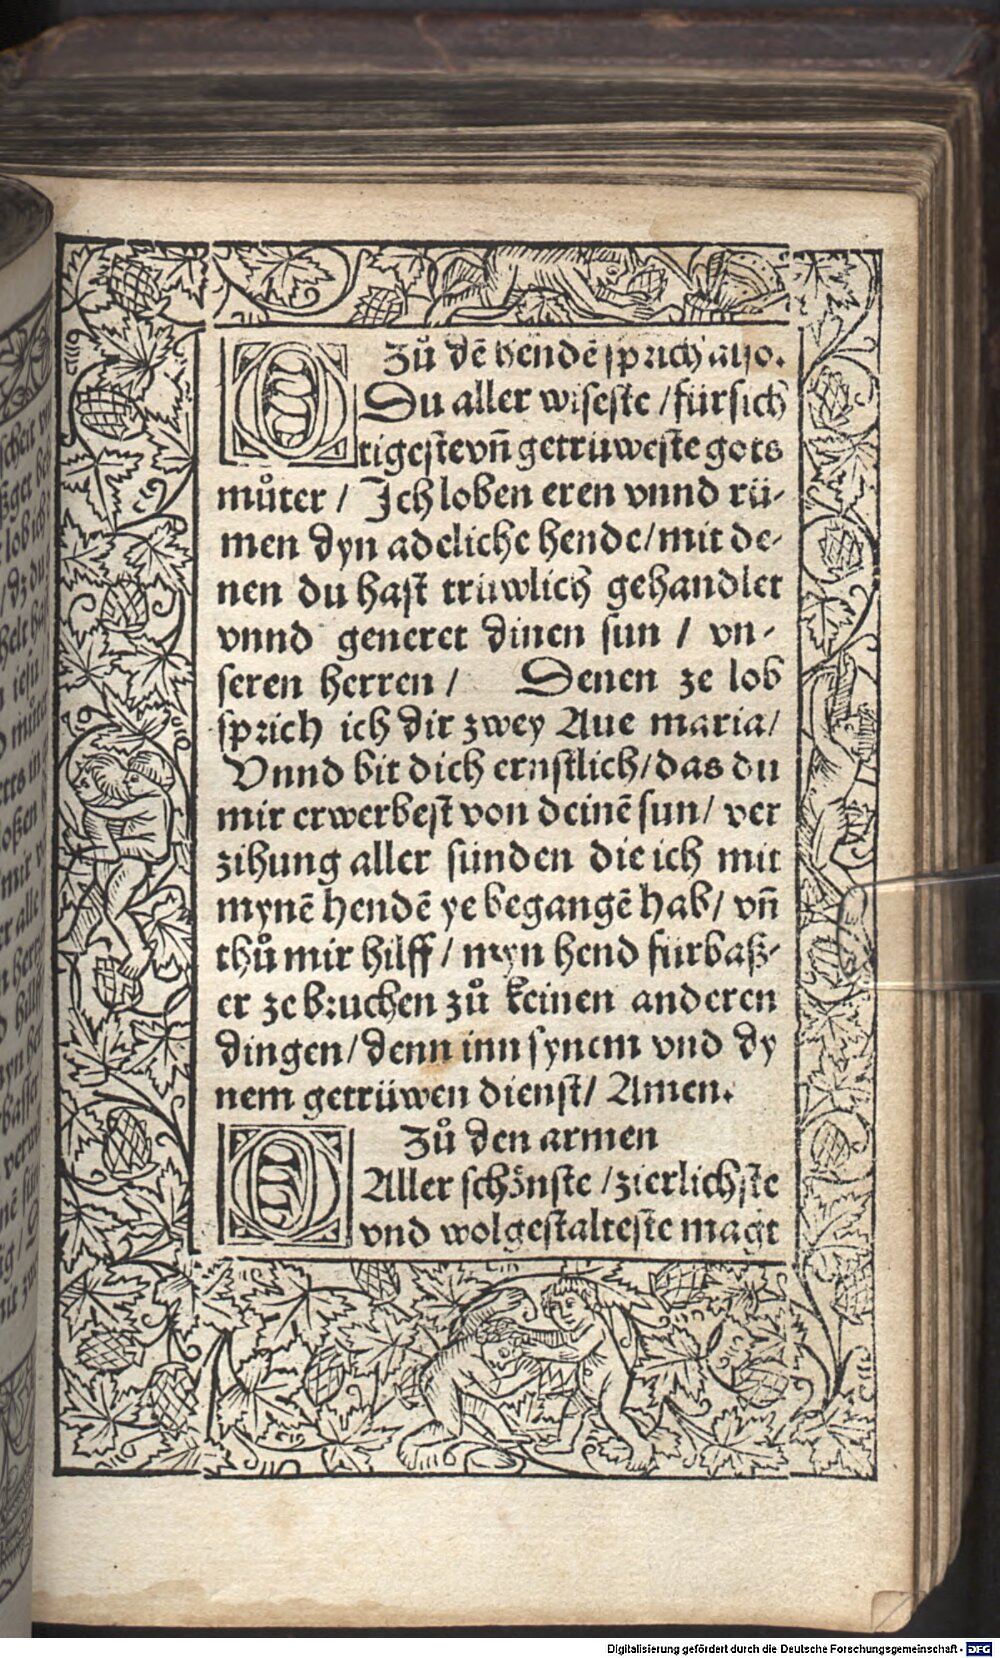 Zů dē hendē sprich also.
O Du aller wiseste / fürsich
tigeste vn̄ getrüweste gots
můter / Ich loben eren vnnd rü-
men dyn adeliche hende / mit de-
nen du hast trüwlich gehandlet
vnnd generet dinen sun / vn-
seren herren / Denen ze lob
sprich ich dir zwey Aue maria /
Vnnd bit dich ernstlich / das du
mir erwerbest von deinē sun / ver
zihung aller sünden die ich mit
mynē hendē ye begangē hab / vn̄
thů mir hilff / myn hend fürbaß-
er ze bruchen zů keinen anderen
dingen / denn inn synem vnd dy
nem getrüwen dienst / Amen.
Zů den armen
O Aller schönste / zierlichste
vnd wolgestalteste magt
Digitalisierung gefördert durch die Deutsche Forschungsgemeinschaft - DFG